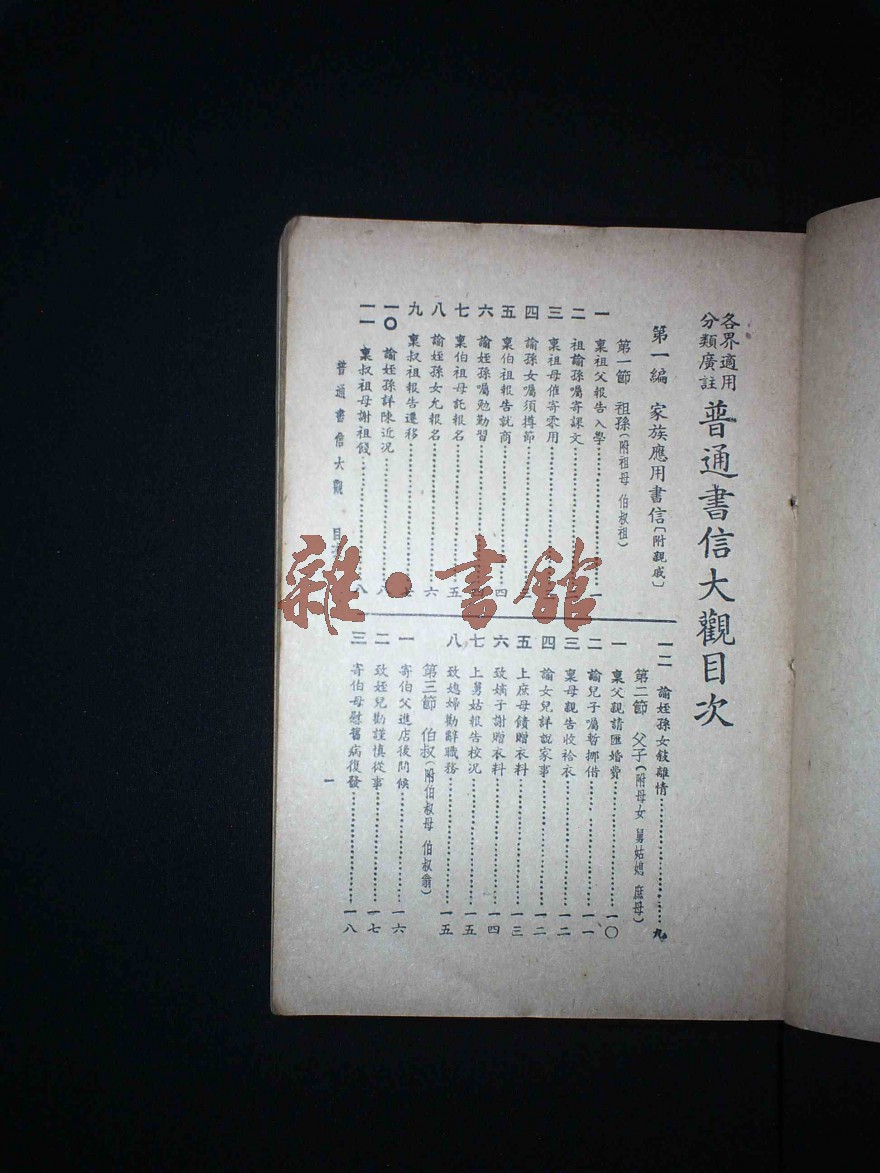 各界適用
分類廣註
普通書信大觀目次
第一編 家族應用書信〔附親戚〕
第一節 祖孫(附祖母 伯叔祖)
一 稟祖父報告入學 一
二 祖諭孫囑寄課文
三 稟祖母催寄零用
四 諭孫女囑須撙節
五 稟伯祖報告就商 四
六 諭姪孫囑勉勤習
七 稟伯祖母託報名 五
八 諭姪孫女允報名 六
九 稟叔祖報告遷移
一〇 諭姪孫詳陳近況 八
一一 稟叔祖母謝祖餞 八
一二 諭姪孫女敍離情 九
第二節 父子(附母女 舅姑媳 庶母)
一 稟父親請匯婚費 一〇
二 諭兒子囑暫挪借 一一
三 稟母親告收袷衣 一二
四 諭女兒詳說家事 一二
五 上庶母饋贈衣料 一三
六 致嫡子謝贈衣料 一四
七 上舅姑報告校況 一五
八 致媳婦勸辭職務 一五
第三節 伯叔(附伯叔母 伯叔翁)
一 寄伯父進店後問候 一六
二 致姪兒勸謹慎從事 一七
三 寄伯母慰舊病復發 一八
普通書信大觀 目
一
雜·書館